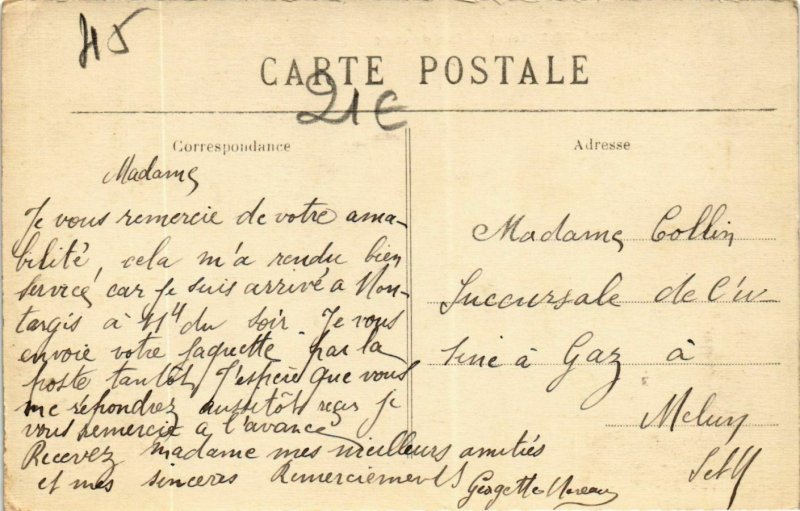 45
CARTE POSTALE
21€
Correspondance
Madame
Je vous remercie de votre ama-
bilité, cela m'a rendu bien
service, car je suis arrivé a Mon-
targis à 11 H du soir. Je vous
envoie votre jaquette par la
poste tantôt, J'espère que vous
me répondrez aussitôt reçus je
vous remercie a l'avance
Recevez madame mes meilleurs amitiés
et mes sincères Remerciements
Georgette Moreau
Adresse
Madame Collin
Succursale de l'u
sine à Gaz à
Melun
S et M